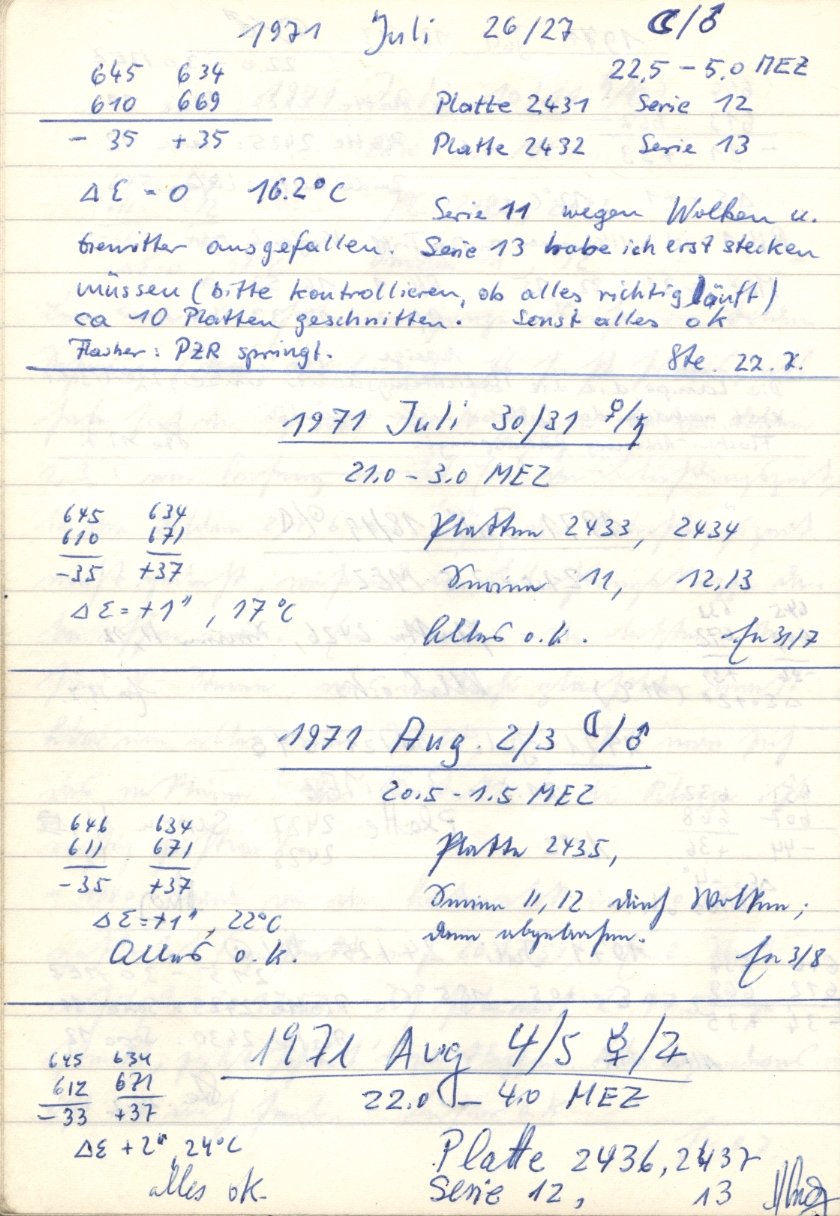 1971 Juli 26/27 ☾/♂
22,5 – 5.0 MEZ
645 634
610 669
- 35 + 35
Platte 2431 Serie 12
Platte 2432 Serie 13
Δ Ɛ = 0 16.2°C
Serie 11 wegen Wolken u.
Gewitter ausgefallen. Serie 13 habe ich erst stecken
müssen (bitte kontrollieren, ob alles richtig läuft)
ca 10 Platten geschnitten. Sonst alles ok
Flasher: PZR springt. Ste. 27. 7.
1971 Juli 30/31 ♀/♄
21.0 – 3.0 MEZ
645 634
610 671
-35 +37
Platten 2433, 2434
Serien 11, 12,13
Δ Ɛ = +1", 17°C
Alles o.k. 31/7
1971 Aug. 2/3 ☾/♂
20.5 - 1.5 MEZ
646 634
611 671
-35 +37
Platte 2435,
Serien 11, 12 durch Wolken;
dann abgebrochen.
Δ Ɛ = +1", 22°C
Alles o.k. 3/8
1971 Aug 4/5 ☿/♃
22.0 – 4.0 MEZ
645 634
612 671
-33 +37
Δ Ɛ +2", 24°C
alles ok.
Platte 2436, 2437
Serie 12, 13